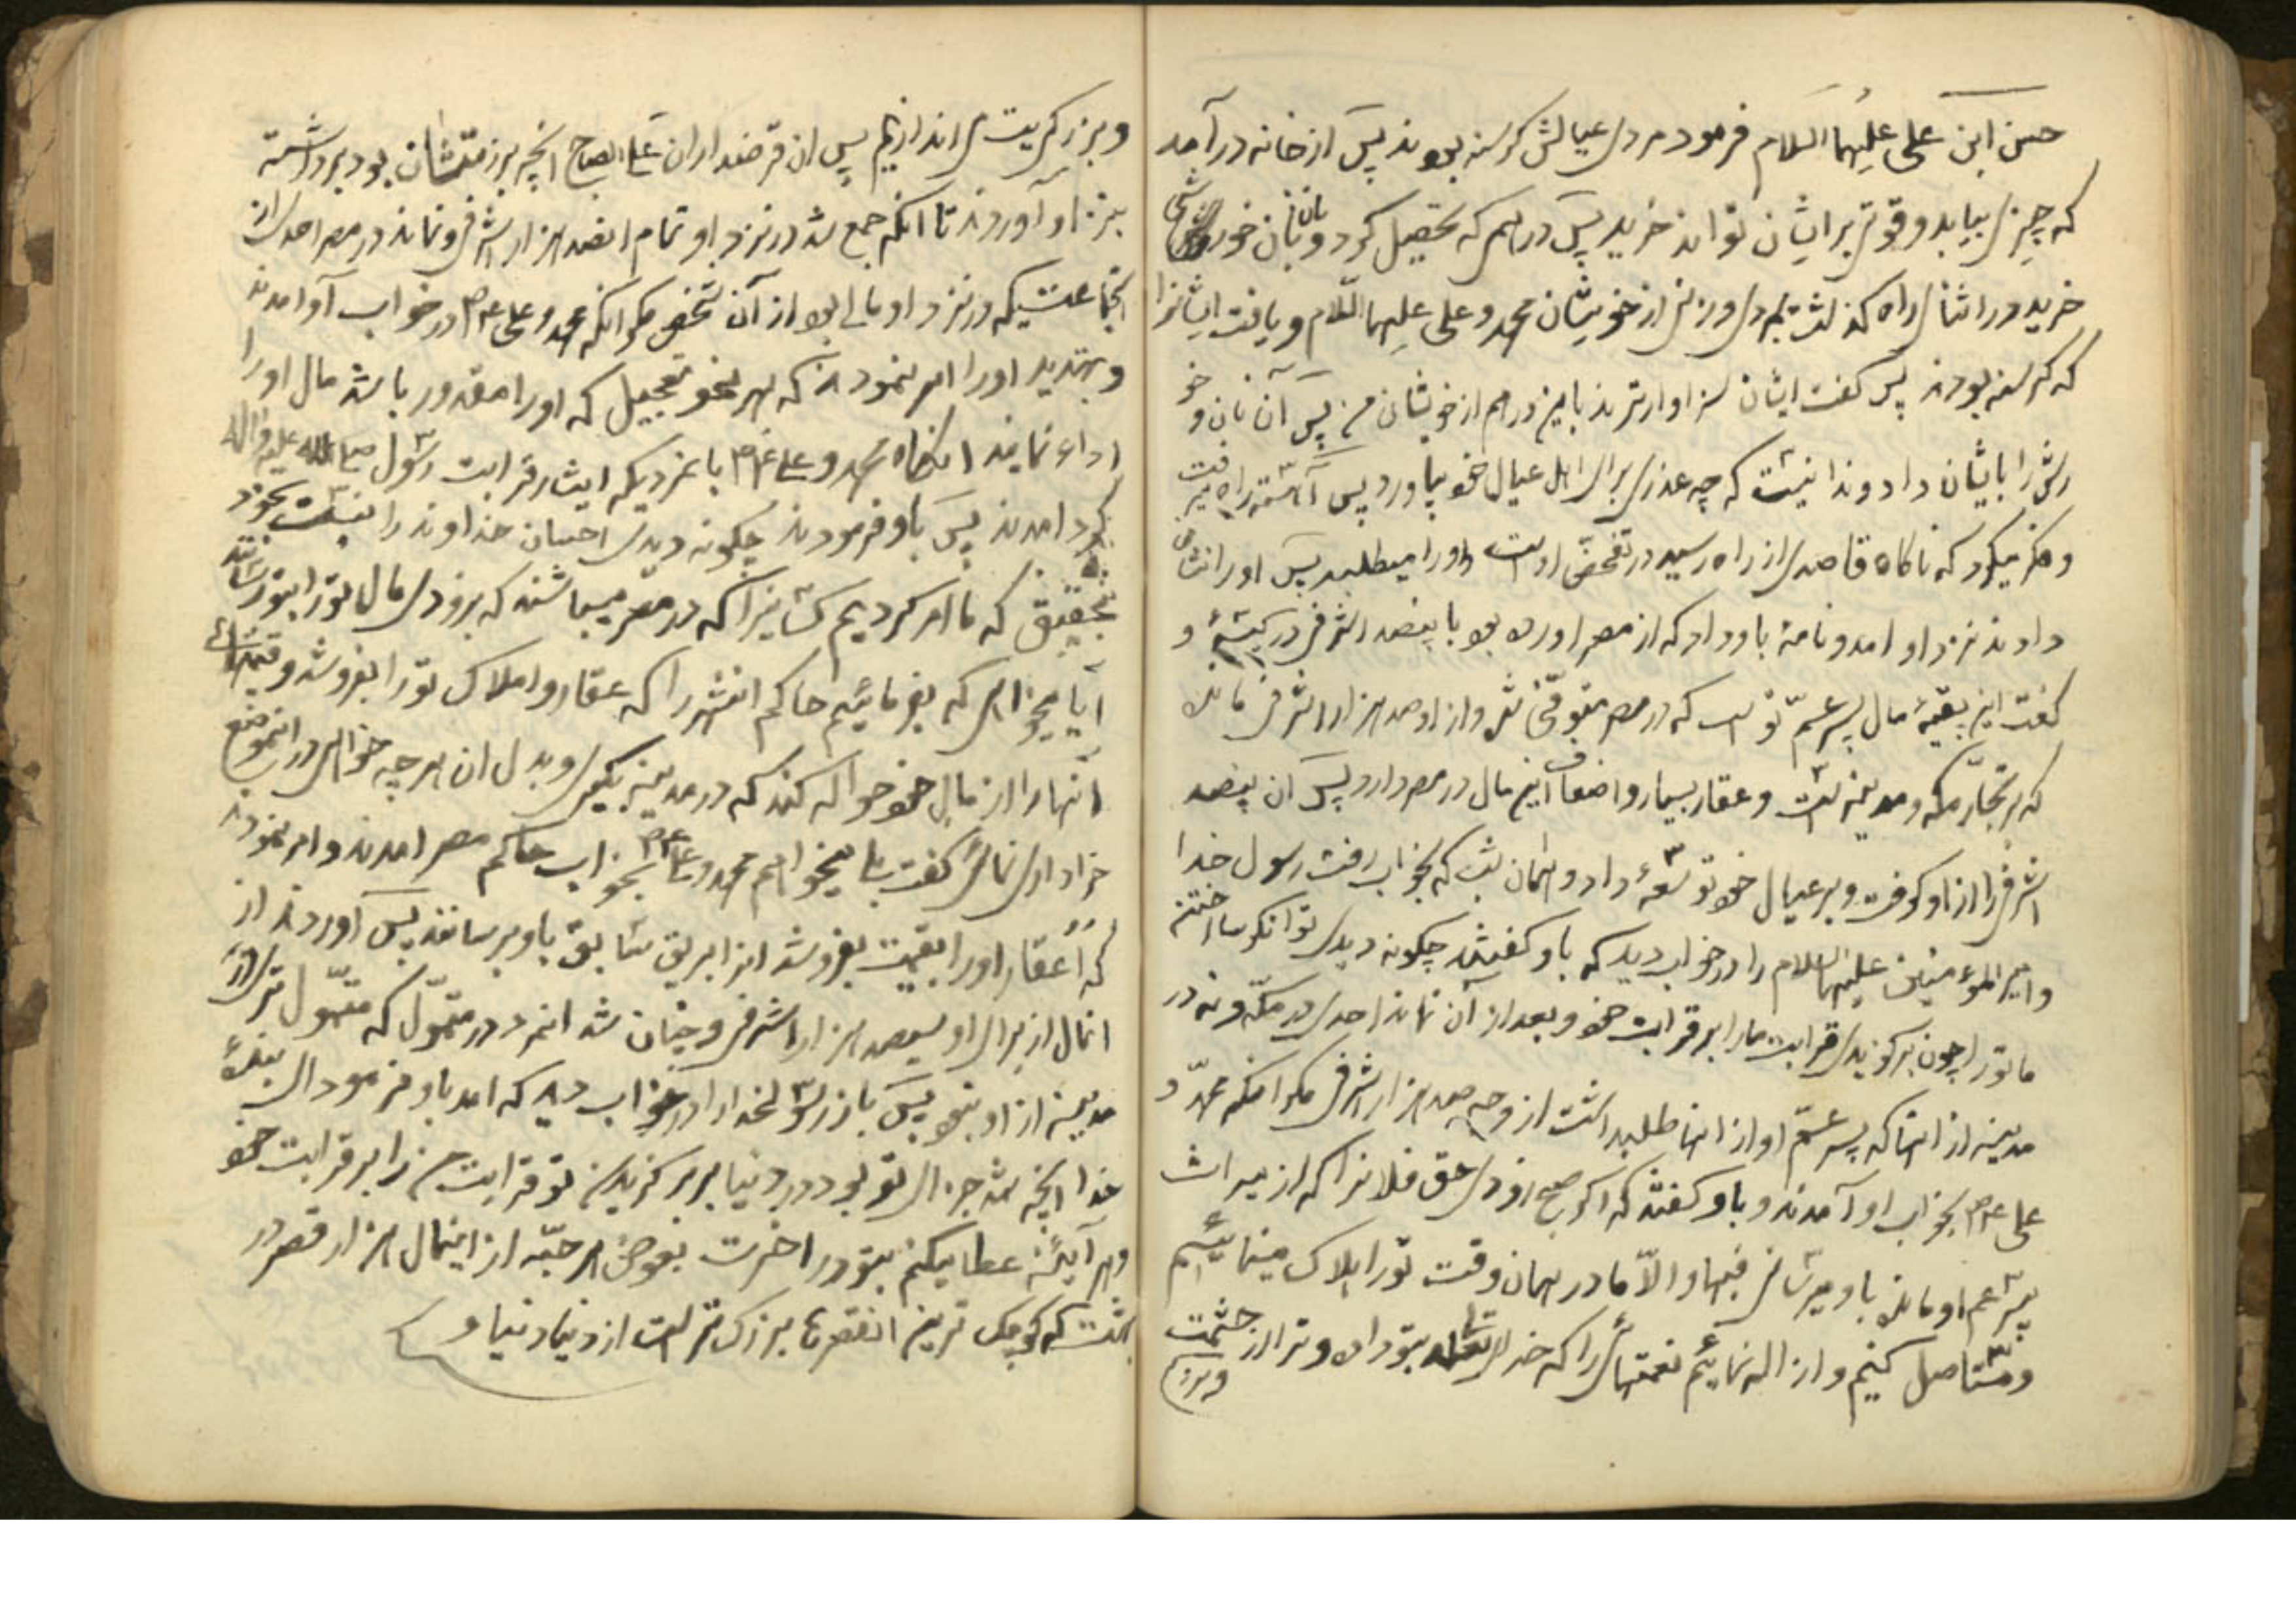 حسن ابن علی علیهما السلام فرمود مردی عیالش کرسنه بودند پس از خانه درآمد
که چیزی بیابد و قوتی برایشان تواند خرید پس درهم که تحصیل کرد و بآن نان خورشی
خرید در اثنای راه کذشت بمردی و زنی از خویشان محمد و علی علیهما السلام و یافت ایشانرا
که کرسنه بودند پس کفت ایشان سزاوارترند باین درهم از خویشان من پس آن نان و خو
رش را بایشان داد و ندانست که چه عذری برای اهل عیال خود بیاورد پس آهسته راه میرفت
و فکر میکرد که ناکاه قاصدی از راه رسید در تفحص اوست و او را میطلبد پس او را نشان
دادند نزد او امد و نامهٔ باو داد که از مصر اورده بود با پنصد اشرفی در کیسهٔ و
کفت این بقیهٔ مال پسر عمّ تو است که در مصر متوفّی شد و از او صد هزار اشرفی مانده
که بر تجّار مکه و مدینه است و عقار بسیار و اضعاف این مال در مصر دارد پس ان پنصد
اشرفی را از او کرفت و بر عیال خود توسعهٔ داد و همان شب که بخواب رفت رسول خدا
و امیر المؤمنین علیهما السلام را در خواب دید که باو کفتند چکونه دیدی توانکر ساختن
ما تو را چون برکزیدی قرابت ما را بر قرابت خود و بعد از آن نماند احدی در مکّه و نه در
مدینه از انها که پسر عمّ او از انها طلبداشت از وجه صد هزار اشرفی مکر انکه محمّد و
علی ع م بخواب او آمدند و باو کفتند که اکر صبح زود حق فلانرا که از میراث
پسر عم او مانده باو میرسانی فبها و الّا ما در همان وقت تو را هلاک مینمائیم
و مستاصل کنیم و ازاله نمائیم نعمتهائی را که خدای تعالی بتو داده و ترا از حشمت
و بزر
و بزرکیت می اندازیم پس ان قرضداران علی الصباح انچه بر ذمتشان بود برداشته
بنزد او آوردند تا انکه جمع شد در نزد او تمام انصد هزار اشرفی و نماند در مصر احدی از
انجماعتیکه در نزد او مالی بود از آن شخص مکر انکه محمد و علی ع م در خواب آو امدند
و بتهدید او را امر نمودند که بهر نحو تعجیل که او را مقدور باشد مال او را
اداء نمایند انکاه محمد و علی ع م با نمردیکه ایثار قرابت رسول صلی الله علیه و اله
کرد امدند پس باو فرمودند چکونه دیدی احسان خداوند را نسبت بخود
بتحقیق که ما امر کردیم کسانیرا که در مصر میباشند که بزودی مال تو را بتو رسانند
آیا میخواهی که بفرمائیم حاکم انشهر را که عقار و املاک تو را بفروشد و قیمتهای
آنها را از مال خود حواله کند که در مدینه بکیری و بدل ان هر چه خواهی در انموضع
خریداری نمائی کفت بلی میخواهم محمد و علی ع م بخواب حاکم مصر امدند و امر نمودند
که عقار او را بقیمت بفروشد از ابریق سابق باو برسانند پس آوردند از
انمال از برای او سیصد هزار اشرفی و چنان شد انمرد در تموّل که متموّل تری در
مدینه از او نبود پس باز رسولخدا را در خواب دید که امد باو فرمود ای بندهٔ
خدا اینچه شد جزای تو بود در دنیا بر برکزیدن تو قرابت من را بر قرابت خود
و هر آینه عطا میکنم بتو در اخرت بعوض هر حبّه از اینمال هزار قصر در
بهشت که کوچک ترین انقصرها بزرک تر است از دنیا و